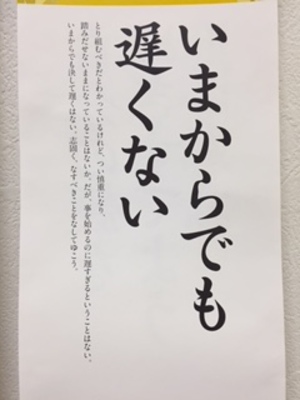 いまからでも
遅くない
とり組むべきだとわかっているけれど、つい慎重になり、
踏みだせないままになっていることはないか。だが、事を始めるのに遅すぎるということはない。
いまからでも決して遅くはない。志固く、なすべきことをなしてゆこう。